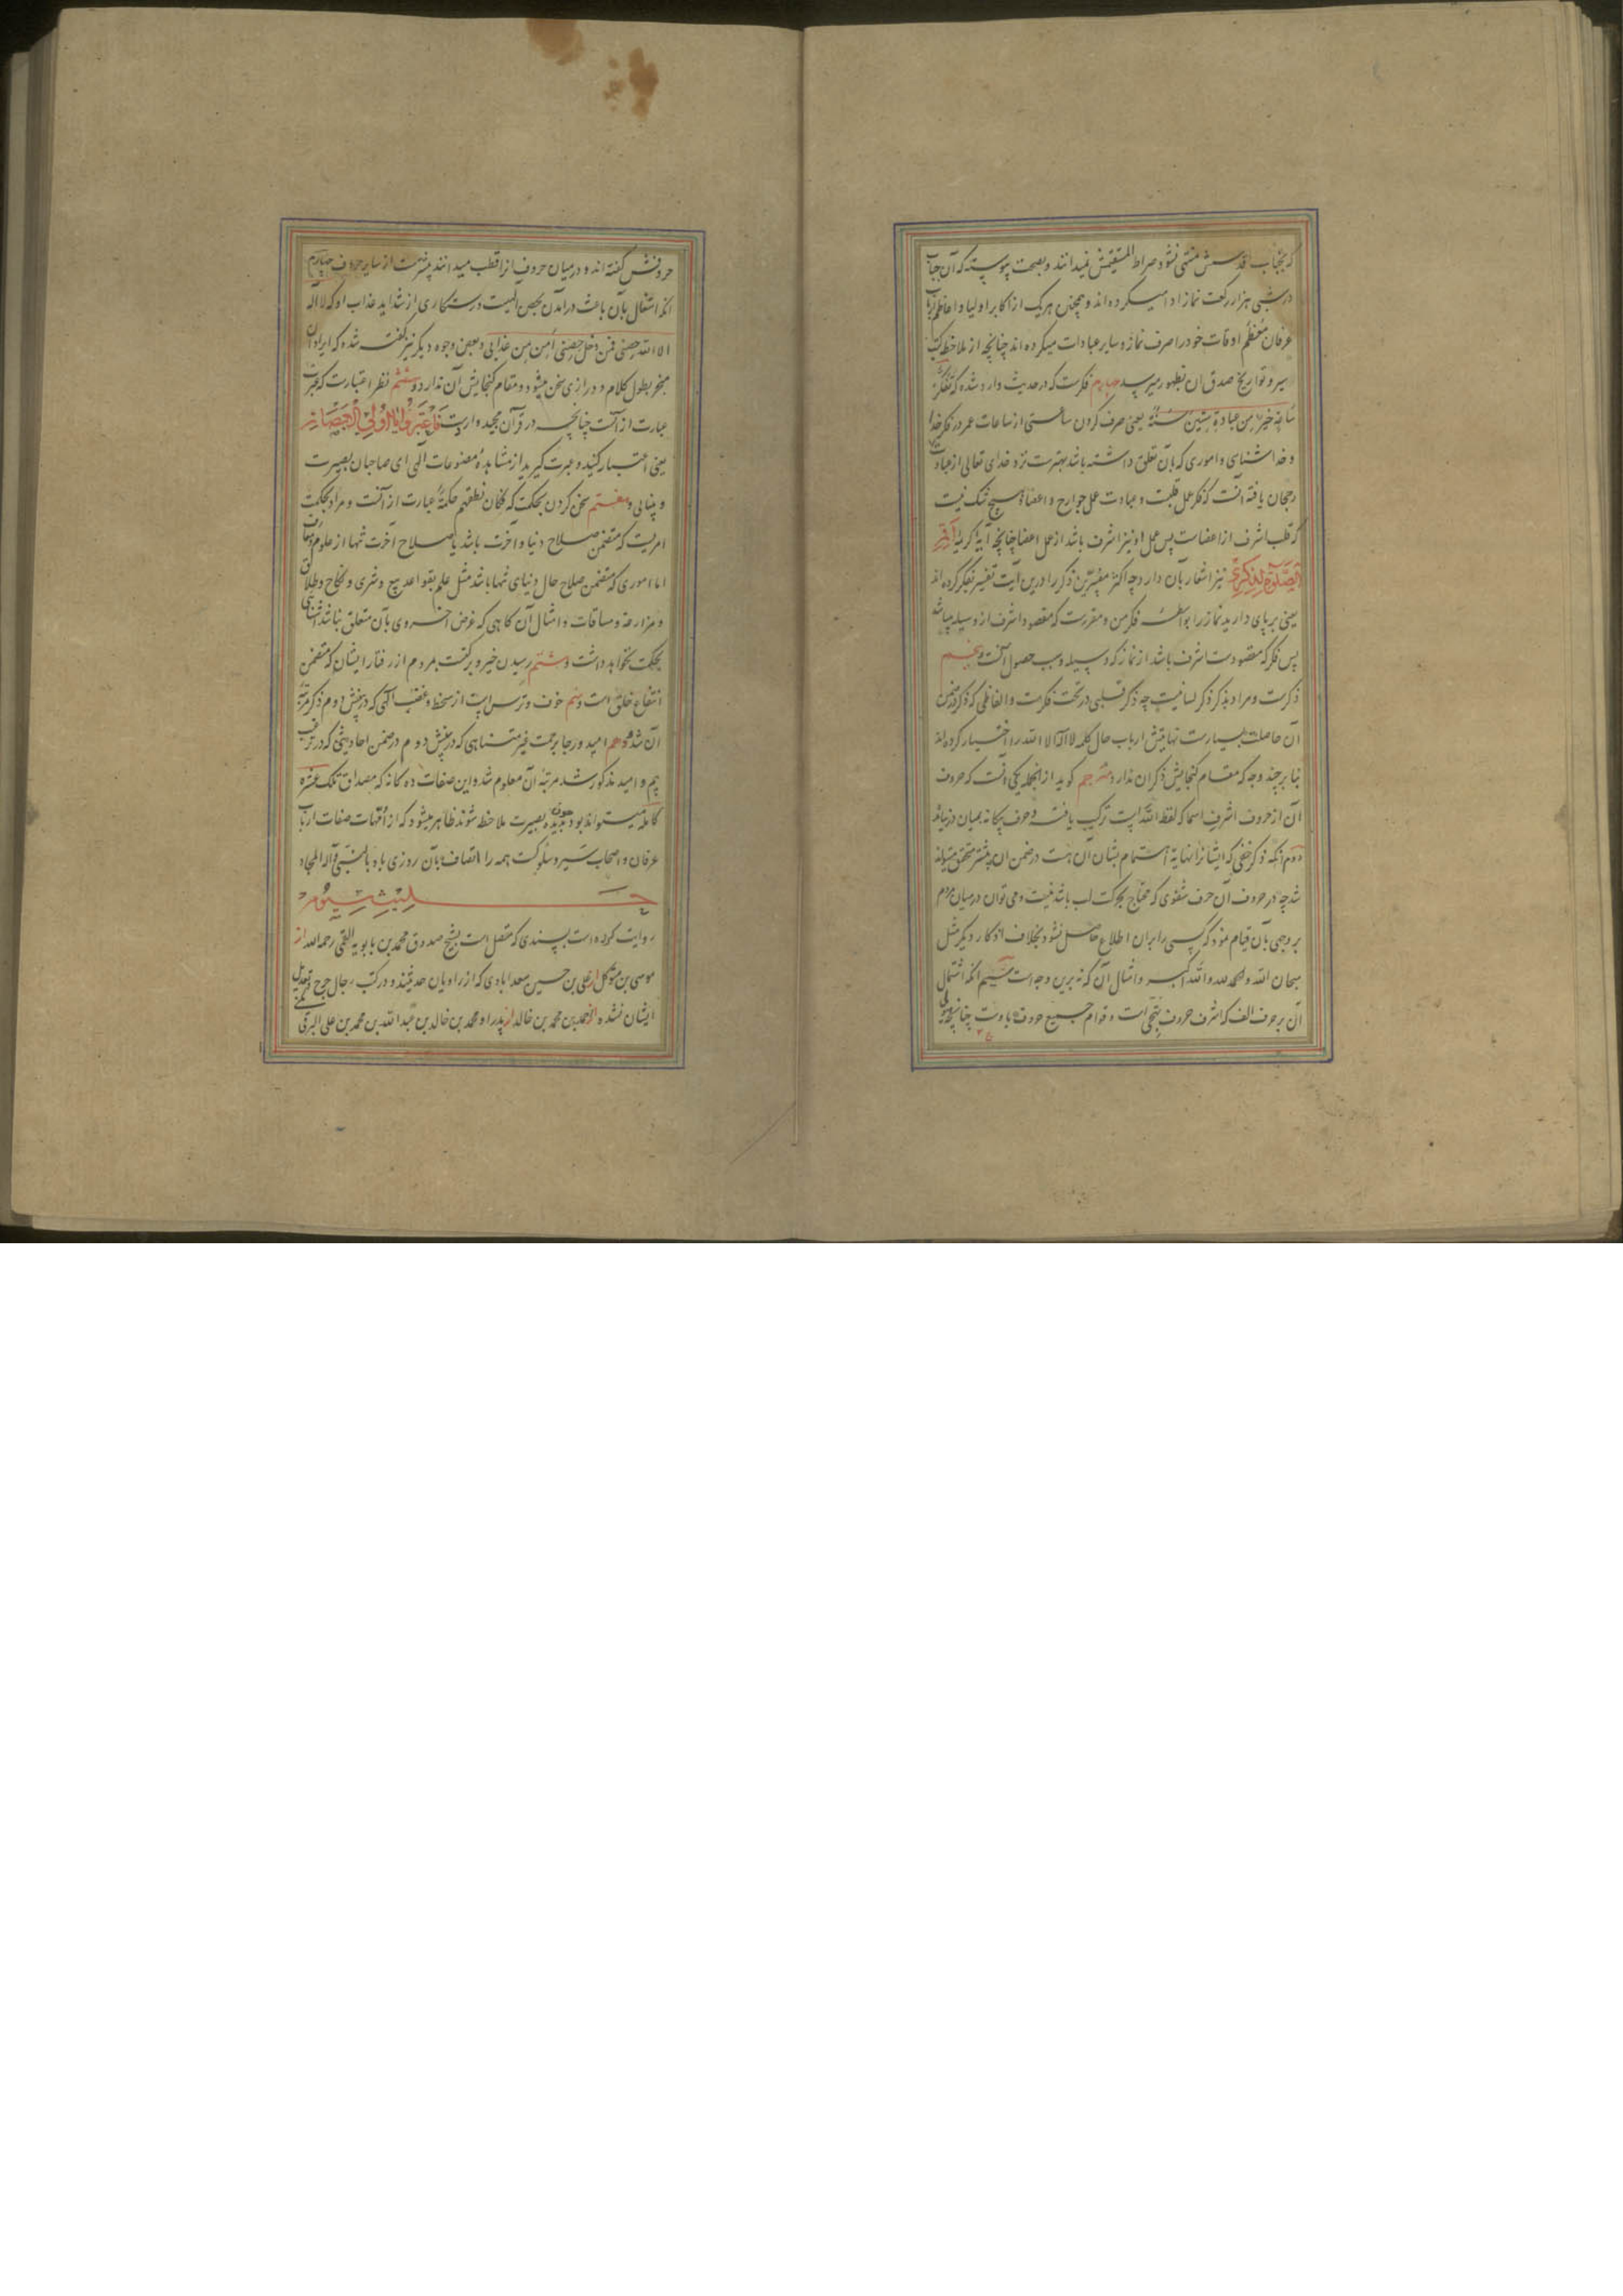 که بجناب اقدسش منتهی نشود صراط المستقیمش نمیدانند و بصحت پیوسته که آن جناب
در شبی هزار رکعت نماز ادا میکرده اند و همچنان هر یک از اکابر اولیا و اعاظم ارباب
عرفان معظم اوقات خود را صرف نماز و سایر عبادات میکرده اند چنانچه از ملاحظه کتب
سیر و تواریخ صدق ان بظهور میرسد چهارم فکرست که در حدیث وارد شده که تفکر
ساعة خیر من عبادة ستین سنة یعنی صرف کردن ساعتی از ساعات عمر در فکر خدا
و خدا شناسی و اموری که بآن تعلق داشته باشد بهترست نزد خدای تعالی از عبادت
رجحان یافته آنست که فکر عمل قلبست و عبادت عمل جوارح و اعضا و هیچ شک نیست
که قلب اشرف از اعضاست پس عمل او نیز اشرف باشد از عمل اعضا چنانچه آیه کریمه اقم
الصلوة لذکری نیز اشعار بآن دارد چه اکثر مفسرین ذکر را درین آیت تفسیر بفکر کرده اند
یعنی بر پای دارید نماز را بواسطه فکر من و مقررست که مقصود اشرف از وسیله میباشد
پس فکر که مقصودست اشرف باشد از نماز که وسیله و سبب حصول آنست و پنجم
ذکرست و مراد بذکر ذکر لسانیست چه ذکر قلبی در تحت فکرست و الفاظی که ذکر در ضمن
آن حاصلست بسیارست نهایتش ارباب حال کلمه لا اله الا الله را اختیار کرده اند
بنابر چند وجه که مقام گنجایش ذکر ان ندارد مترجم گوید از انجمله یکی آنست که حروف
آن از حروف اشرف اسما که لفظ الله است ترکیب یافته و حرف بیگانه بمیان در نیامده
دوم آنکه ذکر خفی که ایشانرا نهایة اهتمام بشان آن هست در ضمن ان بیشتر متحقق میتواند
شد چه در حروف آن حرف شفوی که محتاج بحرکت لب باشد نیست و می توان در میان مردم
بر وجهی بآن قیام نمود که کسی را بران اطلاع حاصل نشود بخلاف اذکار دیگر مثل
سبحان الله والحمد لله والله اکبر و امثال آن که نه برین وجه است سیم آنکه اشتمال
آن بر حرف الف که اشرف حروف تهجی است و قوام جمیع حروف باوست چنانچه
حروفش گفته اند و در میان حروف انرا قطب میدانند بیشترست از سایر حروف چهارم
آنکه اشتغال بآن باعث در امدن بحصن الهیست و رستگاری از شداید عذاب او که لا اله
الا الله حصنی فمن دخل حصنی امن من عذابی و بعض وجوه دیگر نیز گفته شده که ایراد ان
منجر بطول کلام و درازی سخن میشود و مقام گنجایش آن ندارد و ششم نظر اعتبارست که عبرت
عبارت از آنست چنانچه در قرآن مجید وارد است فاعتبروا یا اولی الابصار
یعنی اعتبار کنید و عبرت گیرید از مشاهده مصنوعات الهی ای صاحبان بصیرت
و بینایی و هفتم سخن کردن بحکمت که فکان نطقهم حکمة عبارت از آنست و مراد بحکمت
امریست که متضمن صلاح دنیا و آخرت باشد یا صلاح آخرت تنها از علوم و معارف
اما اموری که متضمن صلاح حال دنیای تنها باشد مثل علم بقواعد بیع و شری و نکاح و طلاق
و مزارعه و مساقات و امثال آن گاهی که غرض اخروی بآن متعلق نباشد
بحکمت نخواهد داشت و هشتم رسیدن خیر و برکت بمردم از رفتار ایشان که متضمن
انتفاع خلق است و نهم خوف و ترس است از سخط و غضب الهی که در بخش دوم ذکر مرتبه
آن شد و دهم امید و رجا برحمت غیر متناهی که در بخش دوم در ضمن احادیثی که در ترغیب
بیم و امید مذکور شد مرتبه آن معلوم شد و این صفات ده گانه که مصداق تلک عشرة
کاملة میتواند بود چون بدیده بصیرت ملاحظه شوند ظاهر میشود که از امهات صفات ارباب
عرفان و اصحاب سیر و سلوکست همه را اتصاف بآن روزی باد بالنبی و آله الامجاد
حدیث سیوم
روایت کرده است بسندی که متصل است بشیخ صدوق محمد بن بابویه القمی رحمه الله از
موسی بن متوکل از علی بن حسین سعدابادی که از راویان حدیثند و در کتب رجال جرح و تعدیل
ایشان نشده از احمد بن محمد بن خالد از پدر او محمد بن خالد بن عبد الله بن محمد بن علی البرقی